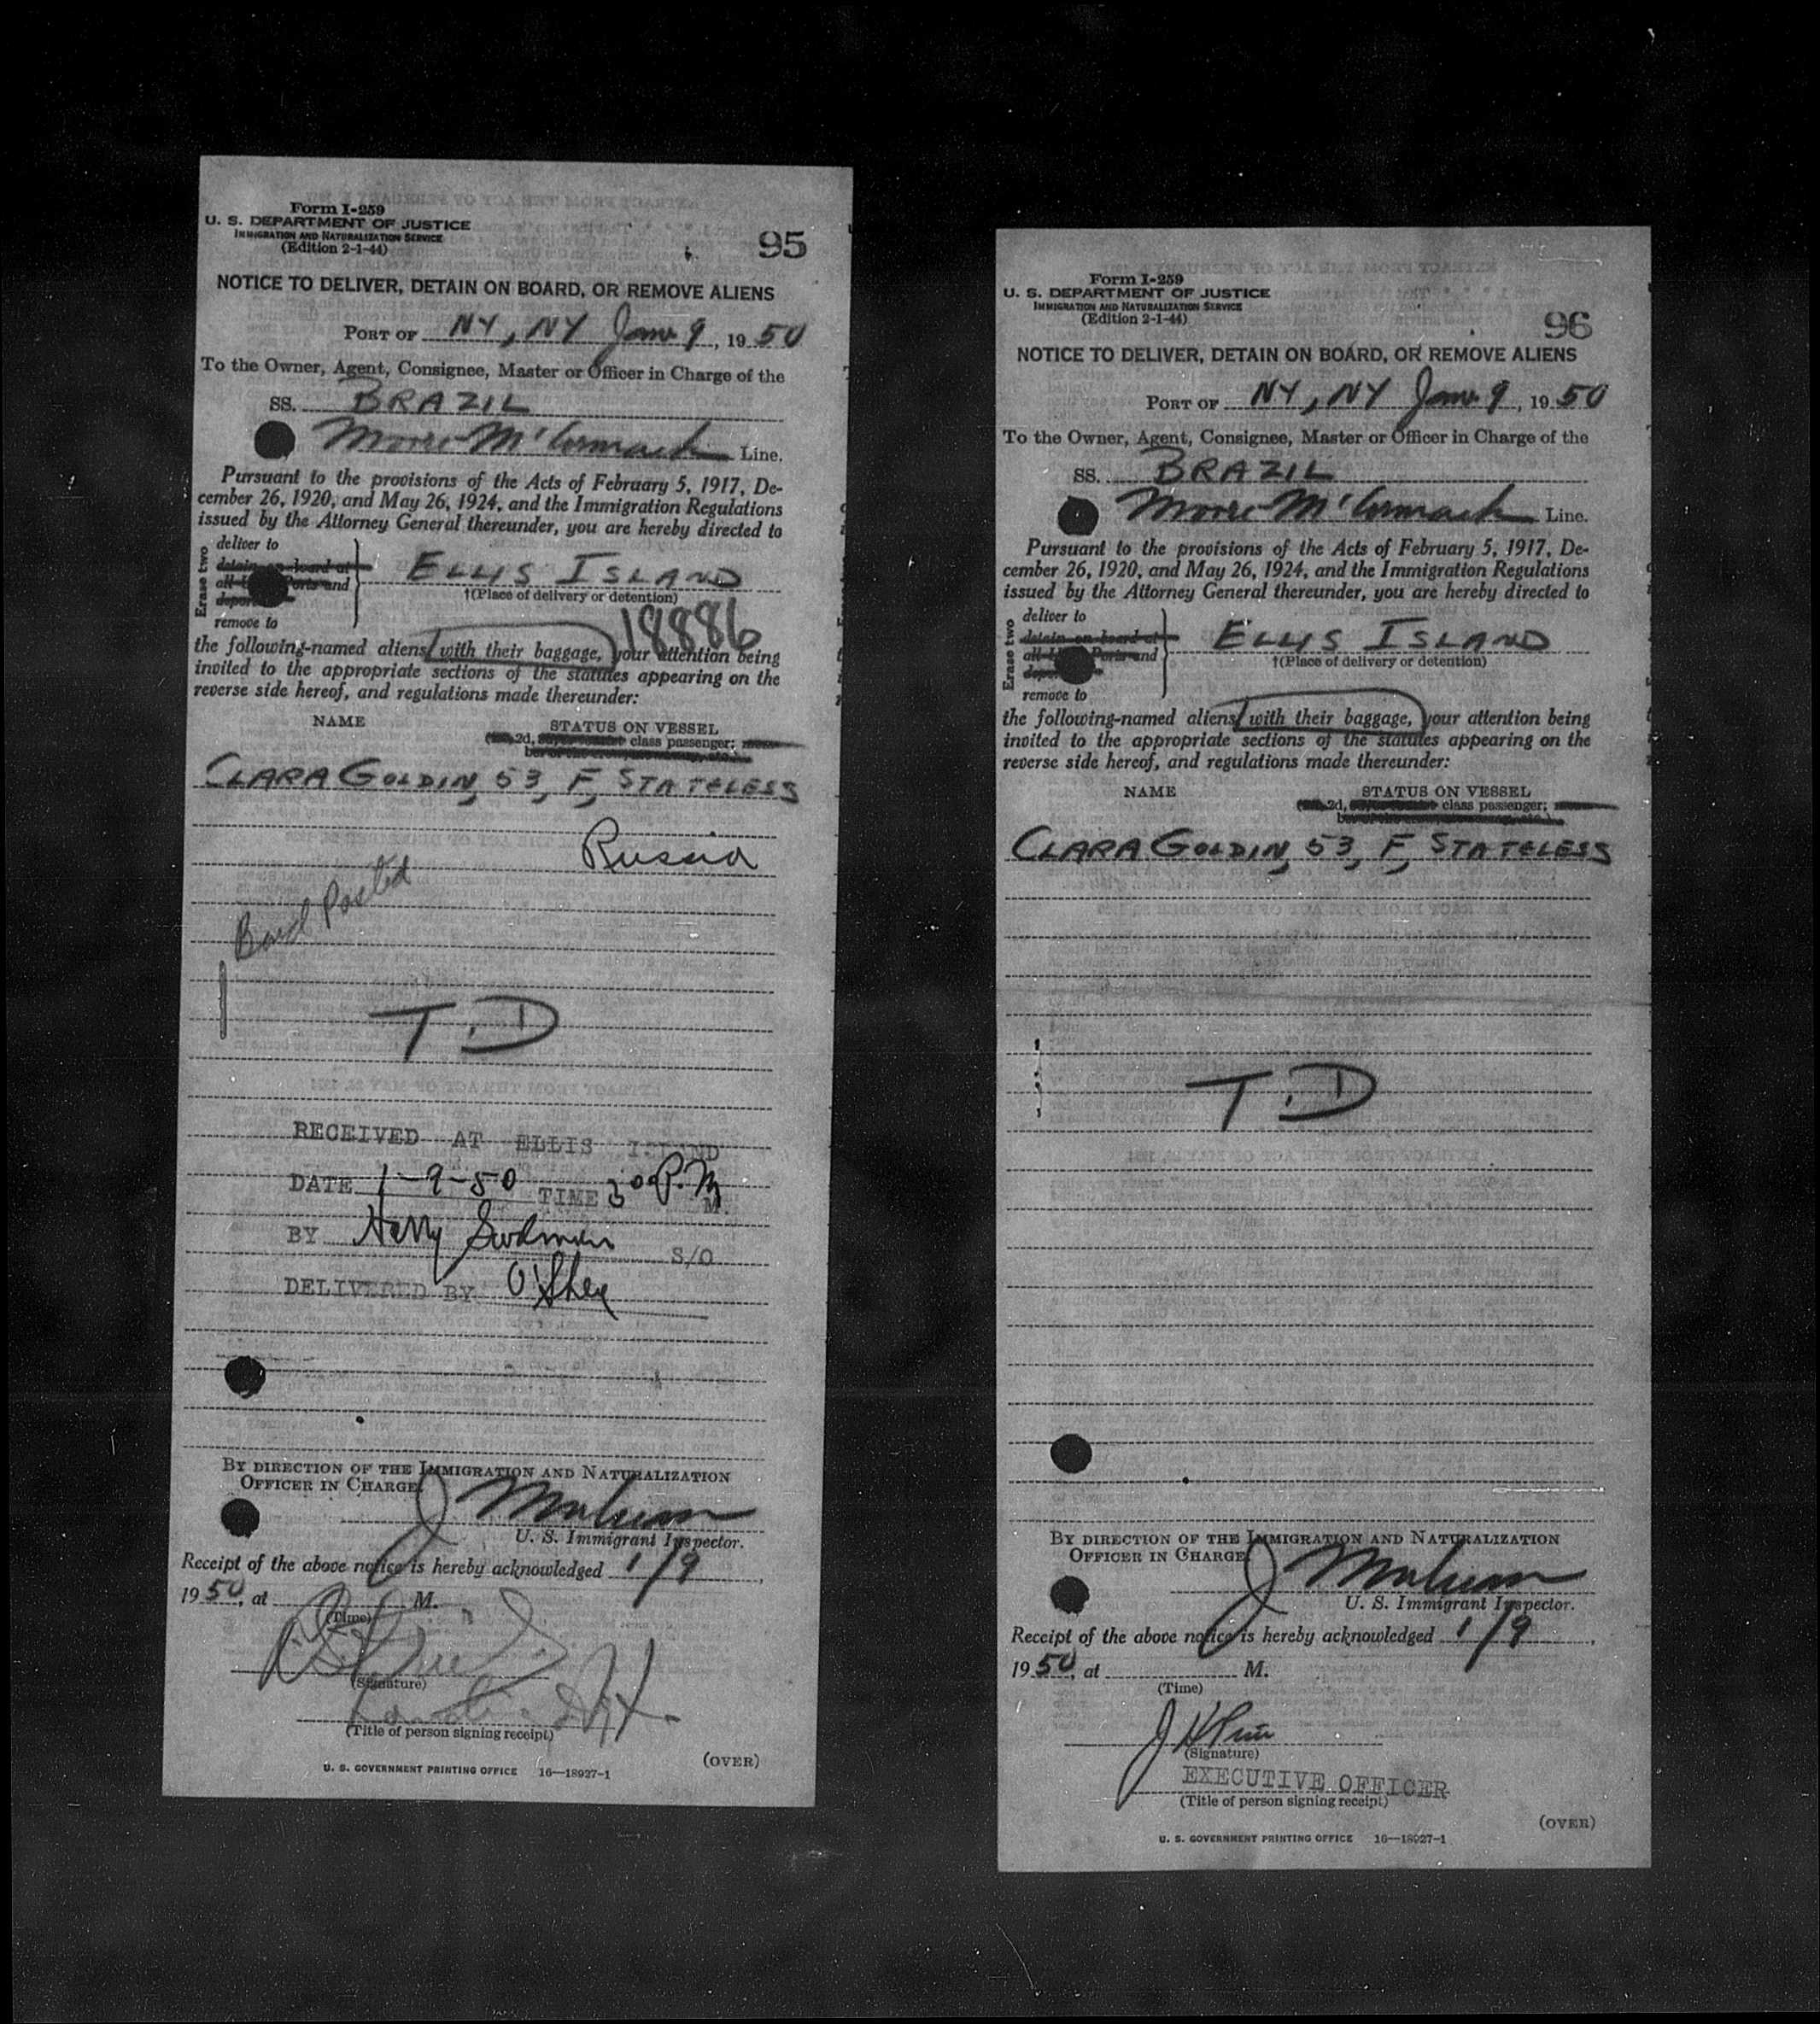 Form I-259
U. S. DEPARTMENT OF JUSTICE
IMMIGRATION AND NATURALIZATION SERVICE
(Edition 2-1-44)
95
NOTICE TO DELIVER, DETAIN ON BOARD, OR REMOVE ALIENS
PORT OF NY, NY Jan 9, 1950
To the Owner, Agent, Consignee, Master or Officer in Charge of the
SS. BRAZIL
Moore-McCormack Line.
Pursuant to the provisions of the Acts of February 5, 1917, De-
cember 26, 1920, and May 26, 1924, and the Immigration Regulations
issued by the Attorney General thereunder, you are hereby directed to
Erase two
deliver to
detain on board at
all Ports and
remove to
ELLIS ISLAND
†(Place of delivery or detention)
18886
the following-named aliens with their baggage, your attention being
invited to the appropriate sections of the statutes appearing on the
reverse side hereof, and regulations made thereunder:
NAME STATUS ON VESSEL
2d, class passenger;
CLARA GOLDIN, 53, F, STATELESS
Russia
Bond Posted
T.D
RECEIVED AT ELLIS ISLAND
DATE 1-9-50 TIME 3 00 P.M M.
BY Harry S/O
DELIVERED BY O'Shea
BY DIRECTION OF THE IMMIGRATION AND NATURALIZATION
OFFICER IN CHARGE:
J
U. S. Immigrant Inspector.
Receipt of the above notice is hereby acknowledged 1/9,
1950, at M.
(Time)
(Signature)
(Title of person signing receipt)
(OVER)
U. S. GOVERNMENT PRINTING OFFICE 16—18927-1
Form I-259
U. S. DEPARTMENT OF JUSTICE
IMMIGRATION AND NATURALIZATION SERVICE
(Edition 2-1-44)
96
NOTICE TO DELIVER, DETAIN ON BOARD, OR REMOVE ALIENS
PORT OF NY, NY Jan 9, 1950
To the Owner, Agent, Consignee, Master or Officer in Charge of the
SS. BRAZIL
Moore-McCormack Line.
Pursuant to the provisions of the Acts of February 5, 1917, De-
cember 26, 1920, and May 26, 1924, and the Immigration Regulations
issued by the Attorney General thereunder, you are hereby directed to
Erase two
deliver to
detain on board at
all Ports and
remove to
ELLIS ISLAND
†(Place of delivery or detention)
the following-named aliens with their baggage, your attention being
invited to the appropriate sections of the statutes appearing on the
reverse side hereof, and regulations made thereunder:
NAME STATUS ON VESSEL
2d, class passenger;
CLARA GOLDIN, 53, F, STATELESS
T.D
BY DIRECTION OF THE IMMIGRATION AND NATURALIZATION
OFFICER IN CHARGE:
J
U. S. Immigrant Inspector.
Receipt of the above notice is hereby acknowledged 1/9,
1950, at M.
(Time)
J H
(Signature)
EXECUTIVE OFFICER
(Title of person signing receipt)
(OVER)
U. S. GOVERNMENT PRINTING OFFICE 16—18927-1